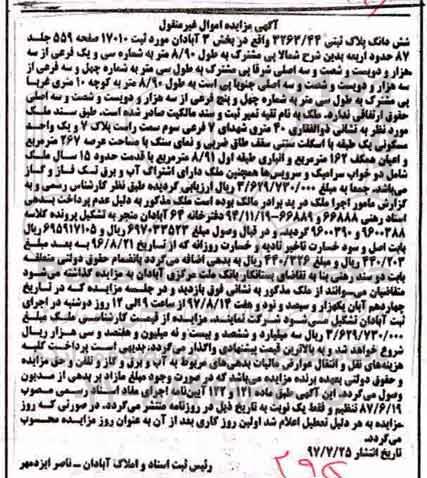 آگهی مزایده اموال غیرمنقول
شش دانگ پلاک ثبتی ۳۲۶۳/۴۴ واقع در بخش ۳ آبادان مورد ثبت ۱۷۰۱۰ صفحه ۵۵۹ جلد
۸۷ حدود اربعه بدین شرح شمالا پی مشترک به طول ۸/۹۰ متر به شماره سی و یک فرعی از سه
هزار و دویست و شصت و سه اصلی شرقا پی مشترک به طول سی متر به شماره چهل و سه فرعی از
سه هزار و دویست و شصت و سه اصلی جنوبا پی است به طول ۸/۹۰ متر به کوچه ۱۰ متری غربا
پی مشترک به طول سی متر به شماره چهل و پنج فرعی از سه هزار و دویست و شصت و سه اصلی
حقوق ارتفاقی ندارد. ملک به نام تقیه ثمیر ثبت و سند مالکیت صادر شده است. طبق سند ملک
مورد نظر به نشانی ذوالفقاری ۴۰ متری شهدای ۷ فرعی سوم سمت راست پلاک ۷ و یک واحد
مسکونی یک طبقه با اسکلت سنتی سقف طاق ضربی و نمای سنگ با مساحت عرصه ۲۶۷ مترمربع
و اعیان همکف ۱۶۲ مترمربع و انباری طبقه اول ۸/۹۱ مترمربع با قدمت حدود ۱۵ سال ملک
شامل دو خواب سرامیک و سرویس‌ها همچنین ملک دارای اشتراک آب و برق تک فاز و گاز
می‌باشد. جمعا به مبلغ ۳/۶۲۹/۷۳۰/۰۰۰ ریال ارزیابی گردیده طبق نظر کارشناس رسمی و به
گزارش مامور اجرا ملک در ید برادر مالک بوده است ملک مذکور به دلیل عدم پرداخت بدهی
اسناد رهنی ۶۶۸۸۸ و ۶۶۸۸۹-۹۴/۱۱/۱۹ دفترخانه ۶۴ آبادان منجر به تشکیل پرونده کلاسه
۹۶۰۰۳۸۸ و ۹۶۰۰۳۹۰ گردید. و در قبال وصول مبلغ ۶۹۷۰۳۳۵۲۳ ریال و ۶۹۵۹۱۷۱۰۵ ریال
بابت اصل و سود خسارت تاخیر تادیه و خسارت روزانه که از تاریخ ۹۶/۸/۲۱ به بعد مبلغ
۴۴۰/۲۰۳ ریال و ۴۴۰/۳۲۶ ریال به بدهی اضافه می‌گردد بانضمام حقوق دولتی متعلقه
بابت دو سند رهنی بنا به تقاضای بستانکار بانک ملت مرکزی آبادان به مزایده گذاشته می‌شود
متقاضیان می‌توانند از ملک مذکور به نشانی فوق بازدید و در جلسه مزایده که در تاریخ
چهاردهم آبان یکهزار و سیصد و نود و هفت ۹۷/۸/۱۴ از ساعت ۹ الی ۱۲ روز دوشنبه در اجرای
ثبت آبادان تشکیل می‌شود شرکت نمایند. مزایده از قیمت کارشناسی ملک مبلغ
۳/۶۲۹/۷۳۰/۰۰۰ ریال سه میلیارد و ششصد و بیست و نه میلیون و هفتصد و سی هزار ریال
شروع خواهد شد و به بالاترین قیمت پیشنهادی واگذار می‌گردد. بدیهی است پرداخت کلیه
هزینه‌های نقل و انتقال عوارض مالیات بدهی‌های مربوط به آب و برق و گاز و تلفن و حق مزایده
و حقوق دولتی بعهده برنده مزایده می‌باشد که در صورت وجود مبلغ مازاد بر بدهی از مدیون
وصول می‌گردد. این آگهی طبق ماده ۱۲۱ و ۱۲۲ آیین‌نامه اجرای مفاد اسناد رسمی مصوب
۸۷/۶/۱۹ تنظیم و فقط یک نوبت به تاریخ ذیل در روزنامه منتشر می‌گردد. در صورتی که روز
مزایده به هر دلیل تعطیل اعلام شد اولین روز کاری بعد از آن به عنوان روز مزایده محسوب
می‌گردد.
تاریخ انتشار ۹۷/۷/۲۵
رئیس ثبت اسناد و املاک آبادان ــ ناصر ایزدمهر